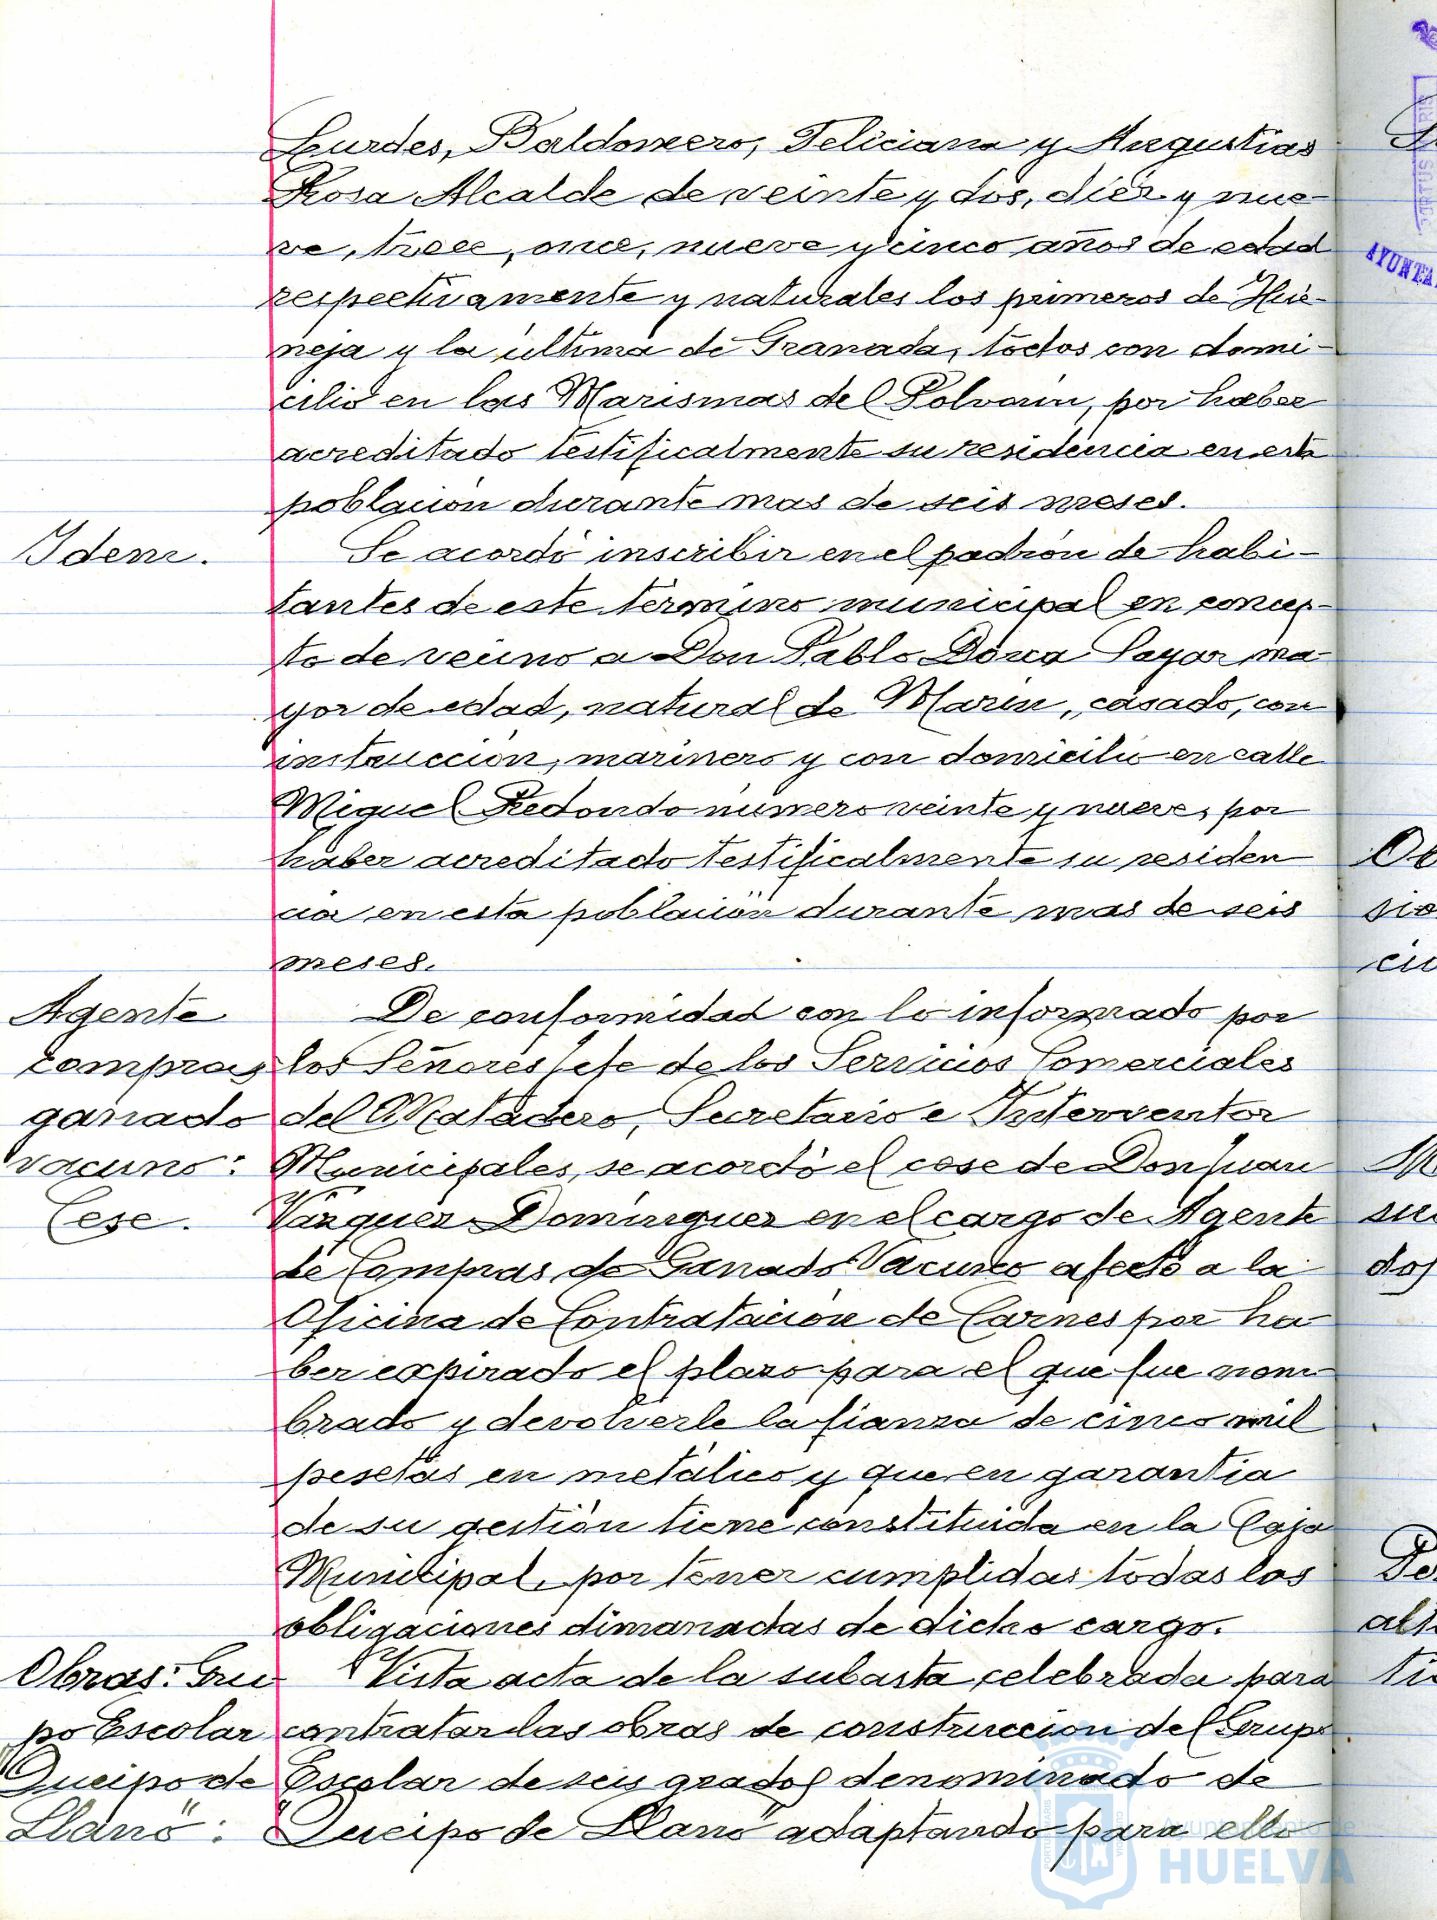 Lurdes, Baldomero, Feliciana y Angustias
Rosa Alcalde de veinte y dos, diez y nue-
ve, trece, once, nueve y cinco años de edad
respectivamente y naturales los primeros de Hué-
neja y la última de Granada, todos con domi-
cilio en las Marismas del Polvorin, por haber
acreditado testificalmente su residencia en esta
población durante mas de seis meses.
Idem.
Se acordó inscribir en el padrón de habi-
tantes de este término municipal en concep-
to de vecino a Don Pablo Dorca Sayar ma-
yor de edad, natural de Marin, casado, con
instrucción, marinero y con domicilio en calle
Miguel Redondo número veinte y nueve, por
haber acreditado testificalmente su residen
cia en esta población durante mas de seis
meses.
Agente
compras
ganado
vacuno:
Cese.
De conformidad con lo informado por
los Señores Jefe de los Servicios Comerciales
del Matadero, Secretario e Interventor
Municipales, se acordó el cese de Don Juan
Vázquez Domínguez en el cargo de Agente
de Compras de Ganado Vacuno afecto a la
Oficina de Contratación de Carnes por ha
ber expirado el plazo para el que fue nom-
brado y devolverle la fianza de cinco mil
pesetas en metálico y que en garantia
de su gestión tiene constituida en la Caja
Municipal, por tener cumplidas todas las
obligaciones dimanadas de dicho cargo.
Obras: Gru
po Escolar
"Queipo de
Llano":
Vista acta de la subasta celebrada para
contratar las obras de construccion del Grupo
Escolar de seis grados denominado de
"Queipo de Llano" adaptando para ello
AYUNTA
Ayuntamiento de
HUELVA